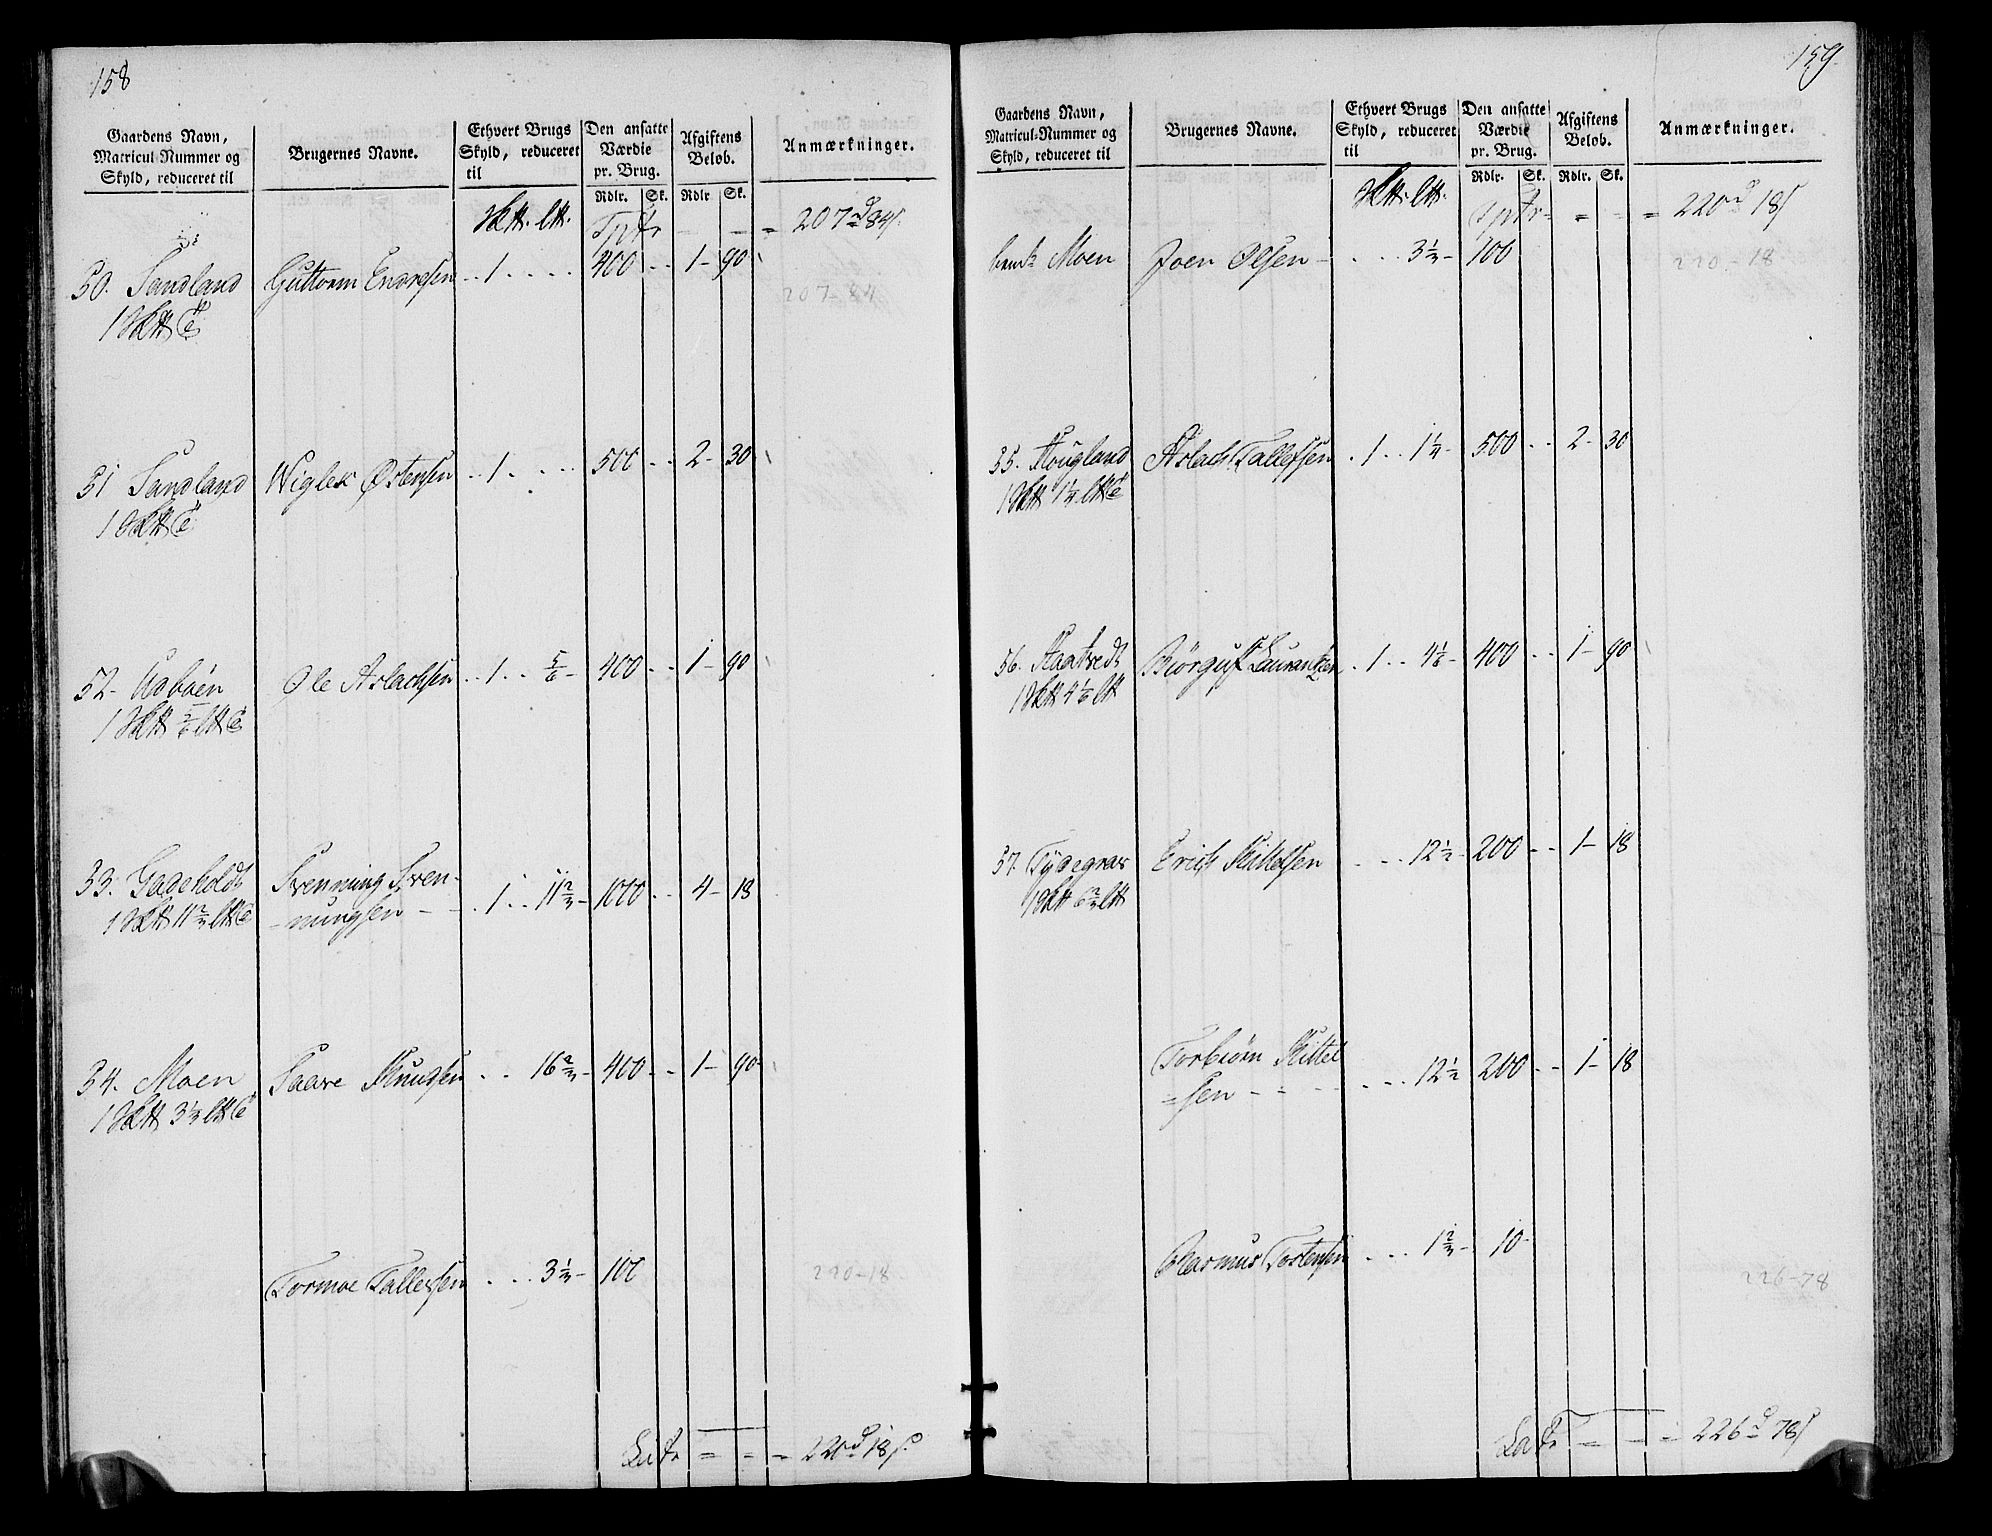 158
Gaardens Navn,
Matricul-Nummer og
Skyld, reduceret til
Brugernes Navne.
Ethvert Brugs
Skyld, reduceret
til
Den ansatte
Værdie
pr. Brug.
Rdlr. Sk.
Afgiftens
Beløb.
Rdlr Sk.
Anmærkninger.
207 84
50. Sandland Guttorm Endresen 1 400 1 - 90
207-84
51 Sandland Wiglek Østensen 1 500 2 - 30
52 Aasboen Ole Aslachsen 1 5/6 400 1 - 90
53. Gadeholdt Svenning Sven-
nungsen 1 11 2/3 1000 4 - 18
54. Moen Saave Knudsen 16 2/3 400 1 - 90
Tormoe Tallefsen 3 1/3 100
220-18
Late = 220 18
159
Gaardens Navn,
Matricul-Nummer og
Skyld, reduceret til
Brugernes Navne.
Ethvert Brugs
Skyld, reduceret
til
Den ansatte
Værdie
pr. Brug.
Rdlr. Sk.
Afgiftens
Beløb.
Rdlr. Sk.
Anmærkninger.
220 18
Moen Joen Olsen 3 1/3 100
220-18
55. Hougland Aslach Tallefsen 1 1 1/4 500 2 - 30
56. Haatvedt Biørguf Laurantzen 1 4 1/6 400 1 - 90
57. Tydegrav Erich Kittelsen 12 1/2 200 1 - 18
Torbiørn Kittel
sen 12 1/2 200 1 - 18
Rasmus Torstensen 1 2/3 10
226-78
Late = 226 78